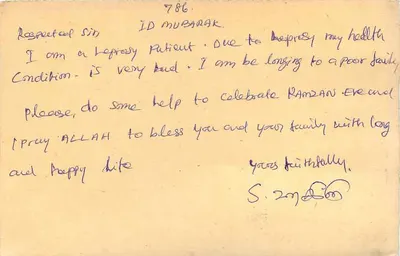 786.
Respected Sir ID MUBARAK
I am a Leprosy Patient. Due to Leprosy my health
Condition. is very bad. I am be longing to a poor family
please, do some help to celebrate RAMZAN Eve and
I pray ALLAH to bless you and your family with long
and happy Life
yours faithfully,
S.